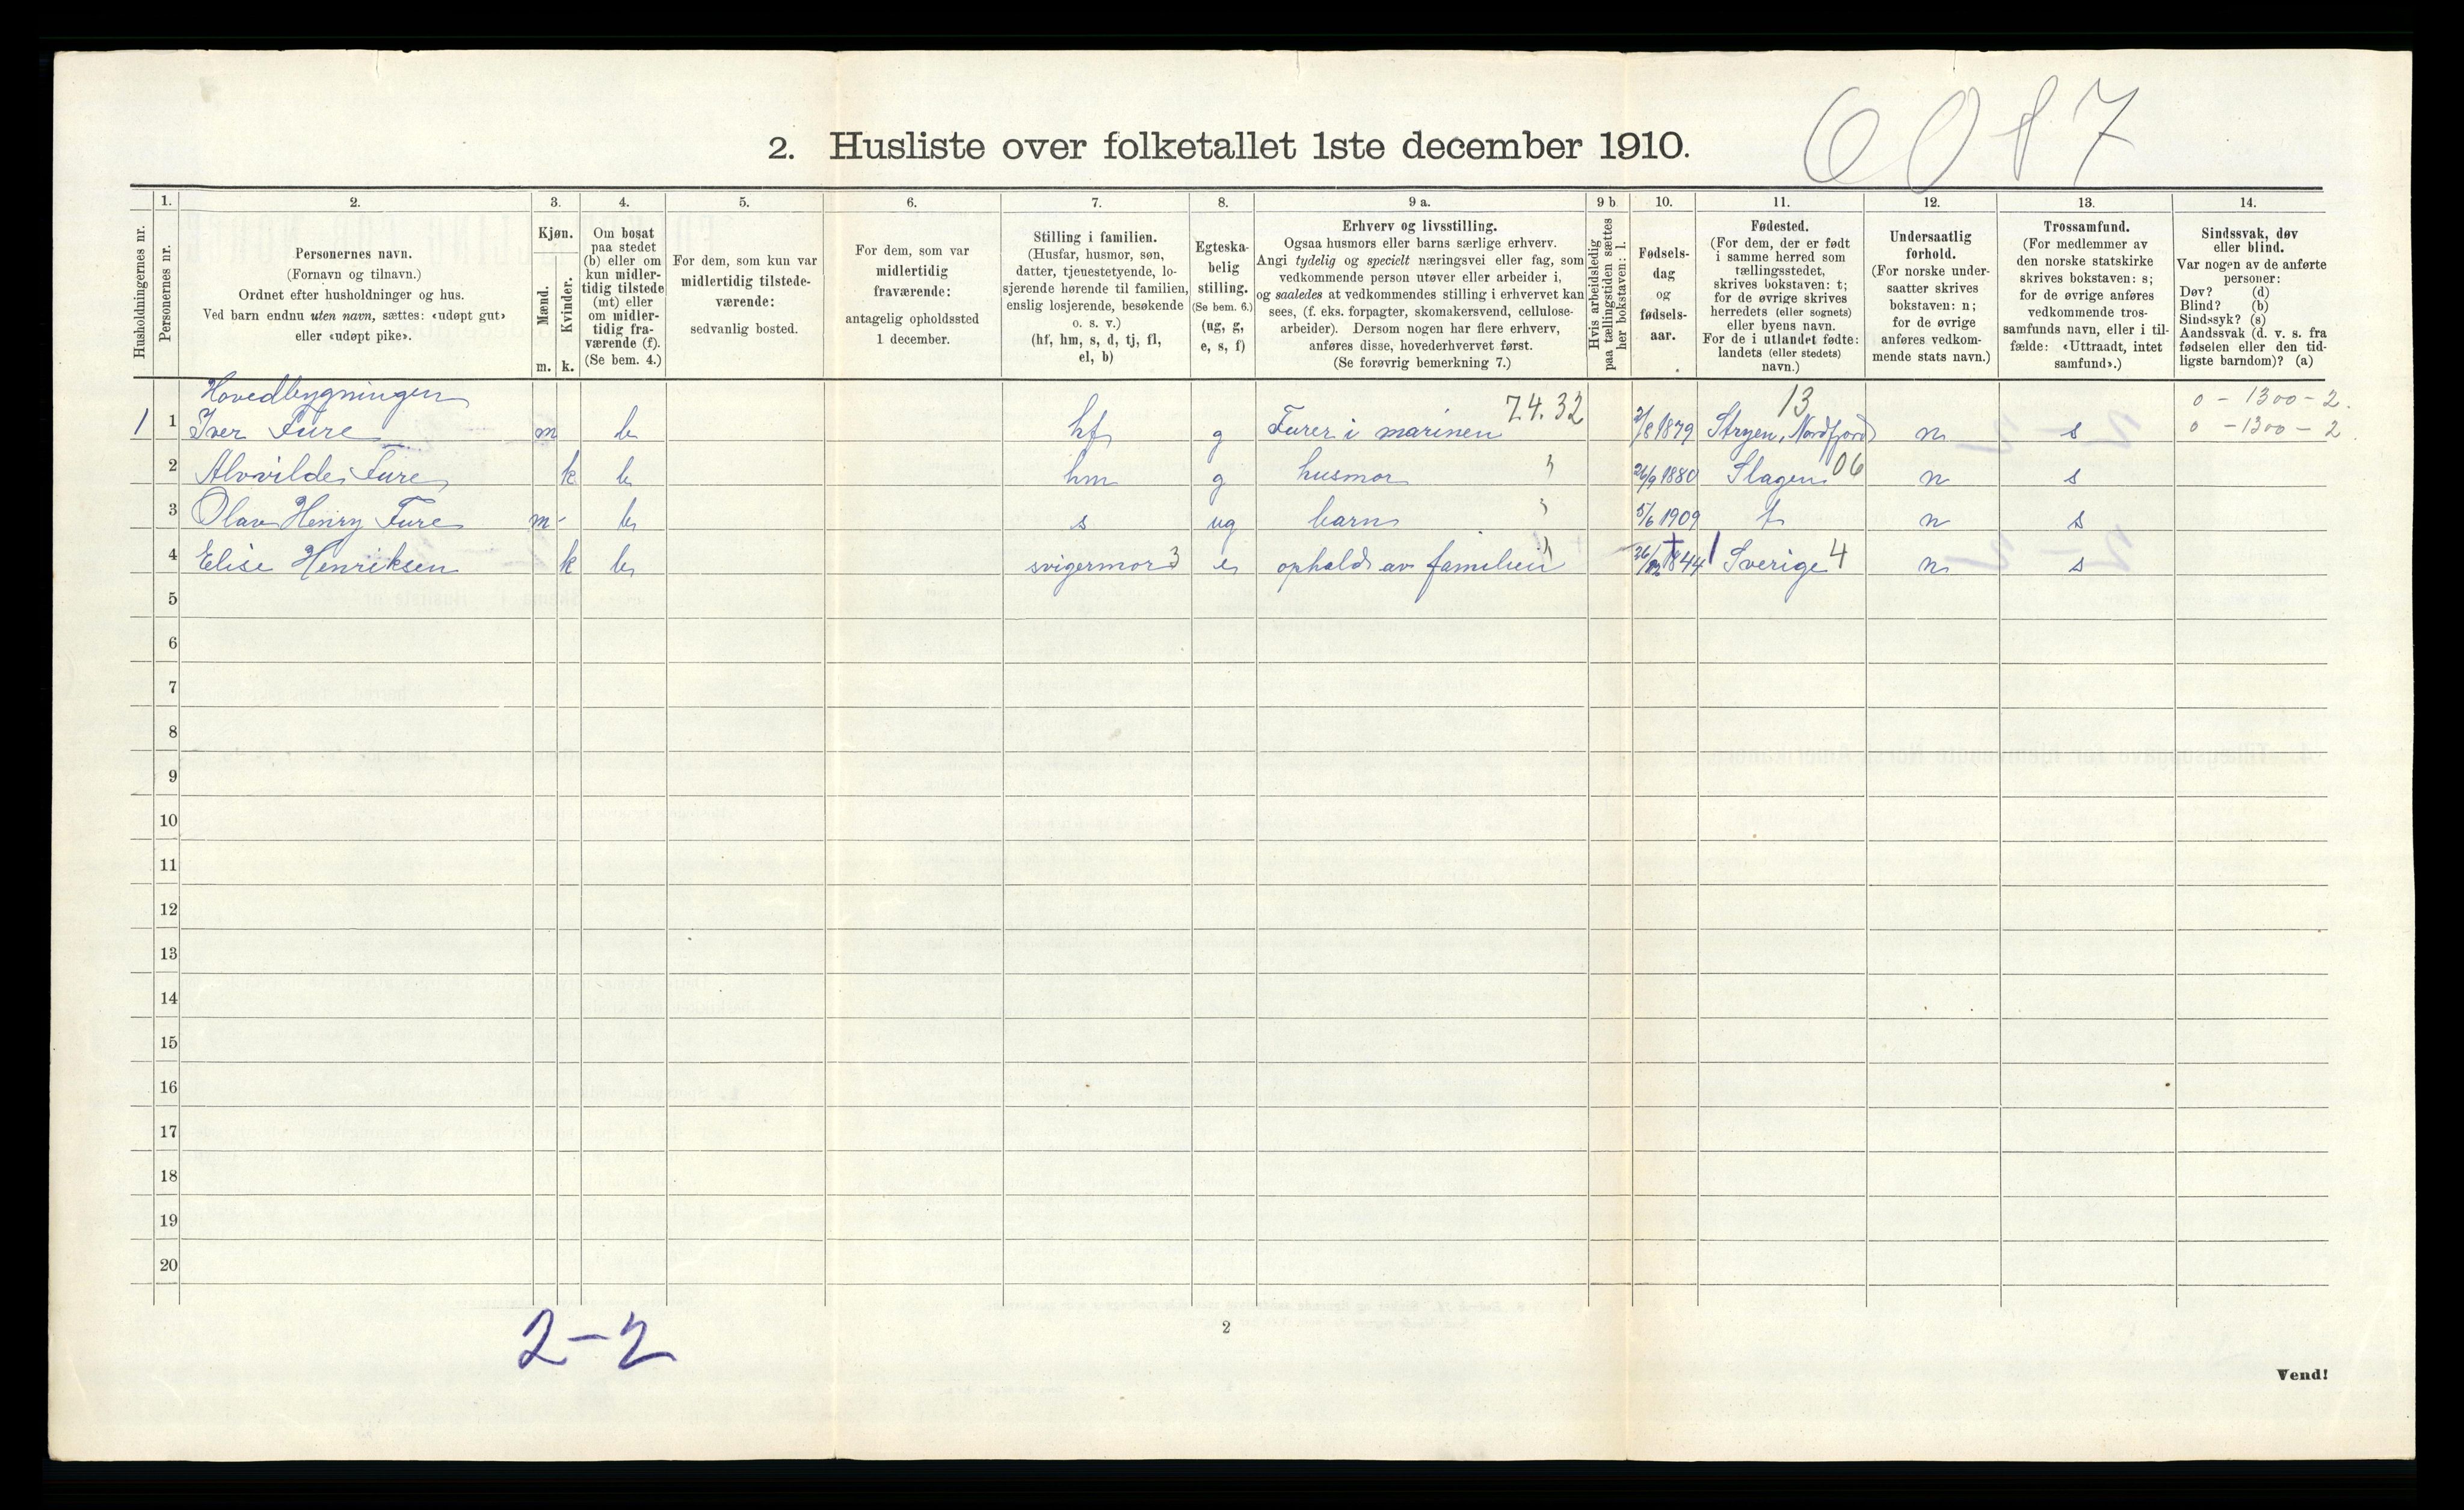 6087
2. Husliste over folketallet 1ste december 1910.
Husholdningernes nr.
1. Personernes nr.
2. Personernes navn.
(Fornavn og tilnavn.)
Ordnet efter husholdninger og hus.
Ved barn endnu uten navn, sættes: «udøpt gut»
eller «udøpt pike».
3. Kjøn.
Mænd. m.
Kvinder. k.
4. Om bosat
paa stedet
(b) eller om
kun midler-
tidig tilstede
(mt) eller
om midler-
tidig fra-
værende (f).
(Se bem. 4.)
5. For dem, som kun var
midlertidig tilstede-
værende:
sedvanlig bosted.
6. For dem, som var
midlertidig
fraværende:
antagelig opholdssted
1 december.
7. Stilling i familien.
(Husfar, husmor, søn,
datter, tjenestetyende, lo-
sjerende hørende til familien,
enslig losjerende, besøkende
o. s. v.)
(hf, hm, s, d, tj, fl,
el, b)
8. Egteska-
belig
stilling.
(Se bem. 6.)
(ug, g,
e, s, f)
9 a. Erhverv og livsstilling.
Ogsaa husmors eller barns særlige erhverv.
Angi tydelig og specielt næringsvei eller fag, som
vedkommende person utøver eller arbeider i,
og saaledes at vedkommendes stilling i erhvervet kan
sees, (f. eks. forpagter, skomakersvend, cellulose-
arbeider). Dersom nogen har flere erhverv,
anføres disse, hovederhvervet først.
(Se forøvrig bemerkning 7.)
9 b. Hvis arbeidsledig
paa tællingstiden sættes
her bokstaven: l.
10. Fødsels-
dag
og
fødsels-
aar.
11. Fødested.
(For dem, der er født
i samme herred som
tællingsstedet,
skrives bokstaven: t;
for de øvrige skrives
herredets (eller sognets)
eller byens navn.
For de i utlandet fødte:
landets (eller stedets)
navn.)
12. Undersaatlig
forhold.
(For norske under-
saatter skrives
bokstaven: n;
for de øvrige
anføres vedkom-
mende stats navn.)
13. Trossamfund.
(For medlemmer av
den norske statskirke
skrives bokstaven: s;
for de øvrige anføres
vedkommende tros-
samfunds navn, eller i til-
fælde: «Uttraadt, intet
samfund».)
14. Sindssvak, døv
eller blind.
Var nogen av de anførte
personer:
Døv? (d)
Blind? (b)
Sindssyk? (s)
Aandssvak (d. v. s. fra
fødselen eller den tid-
ligste barndom)? (a)
Hovedbygningen 74.32 13 0 - 1300 - 2.
1 1 Iver Fure m b hf g Furer i marinen 2/8 1879 Stryen, Nordfjord n s 0 - 1300 - 2.
2 Alvilde Fure k b hm g husmor 26/9 1880 Slagen 06 n s
3 Olav Henry Fure m b s ug barn 5/6 1909 t n s
4 Elise Henriksen k b svigermor 3 e ophold av familien 1844 Sverige 4 n s
5
6
7
8
9
10
11
12
13
14
15
16
17
18
19
20
2-2
2
Vend!